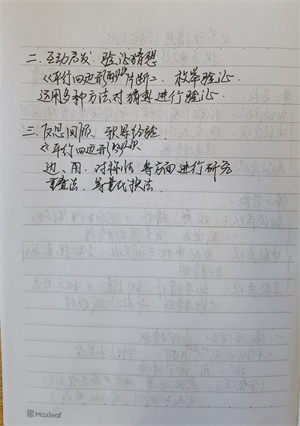 二.互动启发 验证猜想
《平行四边形的 片断二. 枚举验证.
运用多种方法对猜想进行验证.
三.反思回顾. 积累经验
《平行四边形的
边、用、对称性 等方面进行研究
法. 等量代换法.
Maxleaf